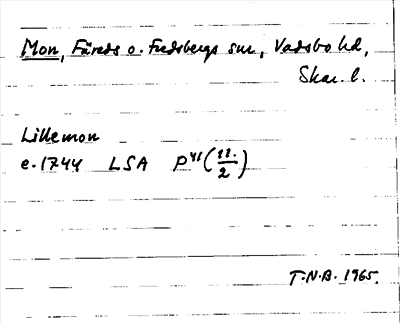 Mon, Färeds o. Fredsbergs snr, Vadsbo hd,
Skar. l.
Lillemon
e. 1744 LSA P41 (11./2)
T.N.B. 1965.